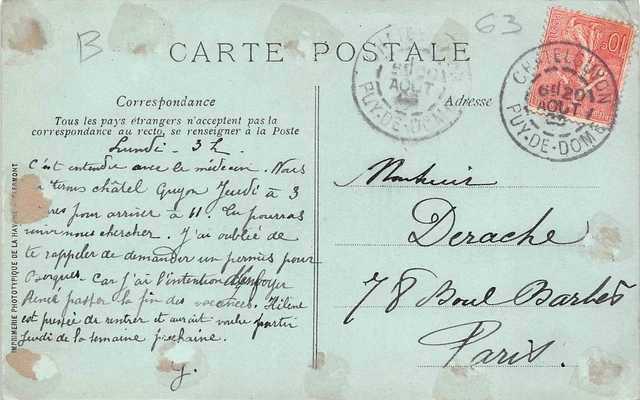 B
63
CARTE POSTALE
10
CHATEL-GUYON
6H 20
AOUT
PUY-DE-DOME
6H 20
AOUT
PUY-DE-DOME
Correspondance
Tous les pays étrangers n'acceptent pas la
correspondance au recto, se renseigner à la Poste
Adresse
Lundi - 3 h.
C'est entendu avec le médecin. Nous
châtel Guyon Jeudi à 3
pour arriver à 11. Tu pourras
venir nous chercher. J'ai oublié de
te rappeler de demander un permis pour
Car j'ai l'intention d'envoyer
René passer la fin des vacances. Hélène
est pressée de rentrer et aurait voulu partir
jeudi de la semaine prochaine.
J.
Monsieur
Derache
78 Boul Barbès
Paris.
IMPRIMERIE PHOTOTYPIQUE DE LA